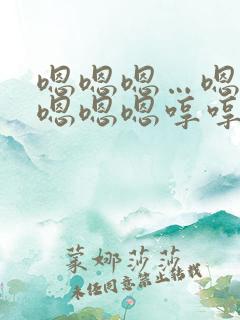 嗯嗯嗯…嗯
嗯嗯嗯哼哼
莱娜莎莎
未经同意禁止转载